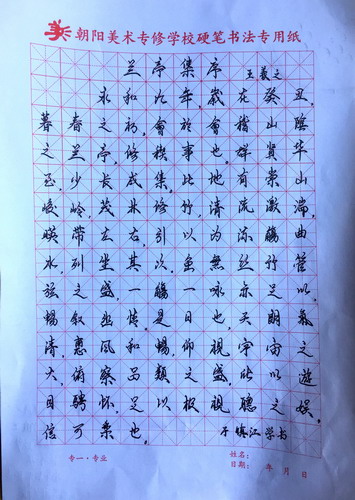 朝阳美术专修学校硬笔书法专用纸
兰亭集序 王羲之
永和九年，歲在癸丑，
暮春之初，會於會稽山陰
之兰亭，修稧事也。群賢毕
至，少长咸集。此地有崇山
峻岭，茂林修竹，清流激湍，
暎带左右，引以为流觴曲
水，列坐其次，虽無丝竹管
弦之盛，一觴一咏，亦足以
暢叙幽情。是日也，天朗氣
清，惠风和暢，仰視宇宙之
大，俯察品類之盛，所以遊
目騁怀，足以极視聽之娱，
信可樂也。 于镇江学书
专一·专业 姓名：
日期： 年 月 日